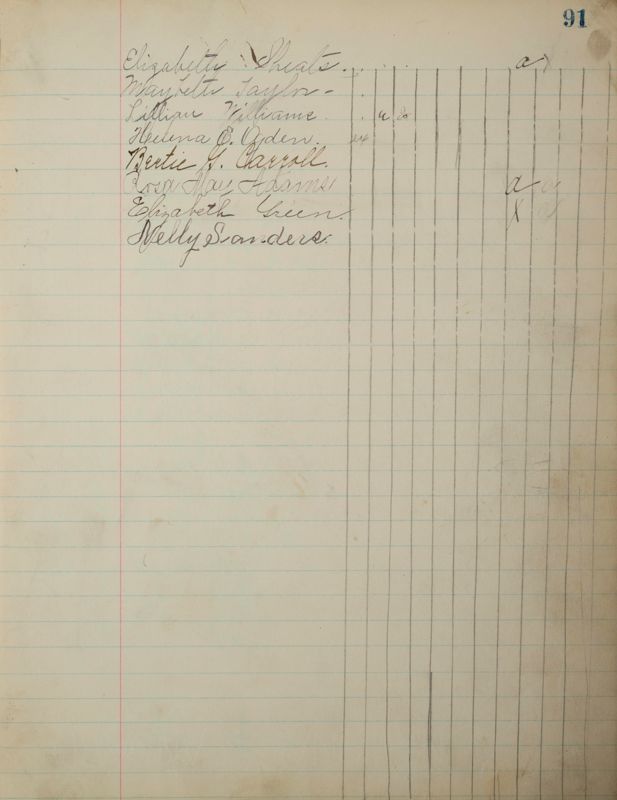 91
Elizabeth Sheats. a
Maybeth Taylor -
Lillian Williams
Helena E. Ogden.
Bertie G. Carroll.
Rosa May Adams a
Elizabeth Green. X
Nelly Sanders.